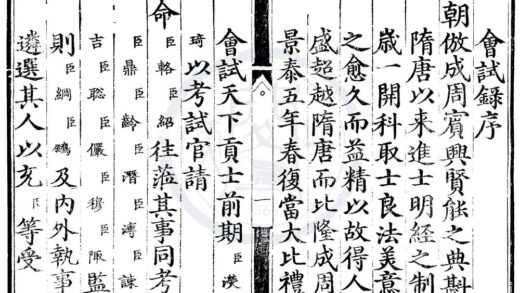 會試錄序
朝倣成周賓興賢能之典斟
隋唐以来進士明經之制
歲一開科取士良法美意
之愈久而益精以故得人
盛超越隋唐而比隆成周
景泰五年春復當大比禮
會試天下貢士前期臣濙
琦以考試官請
命
臣輅臣紹往蒞其事同考
臣鼎臣齡臣潛臣溥臣諫
吉臣聰臣儼臣穆臣監
則臣綱臣及内外執事
遴選其人以充臣等受